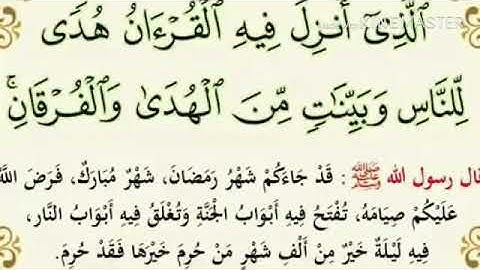 ٱلَّذِىٓ أُنزِلَ فِيهِ ٱلْقُرْءَانُ هُدًى
لِّلنَّاسِ وَبَيِّنَٰتٍ مِّنَ ٱلْهُدَىٰ وَٱلْفُرْقَانِ ۚ
قال رسول الله ﷺ : قَدْ جَاءَكُمْ شَهْرُ رَمَضَانَ، شَهْرٌ مُبَارَكٌ، فَرَضَ اللَّهُ
عَلَيْكُمْ صِيَامَهُ، تُفْتَحُ فِيهِ أَبْوَابُ الْجَنَّةِ وَتُغْلَقُ فِيهِ أَبْوَابُ النَّارِ،
فِيهِ لَيْلَةٌ خَيْرٌ مِنْ أَلْفِ شَهْرٍ مَنْ حُرِمَ خَيْرَهَا فَقَدْ حُرِمَ.